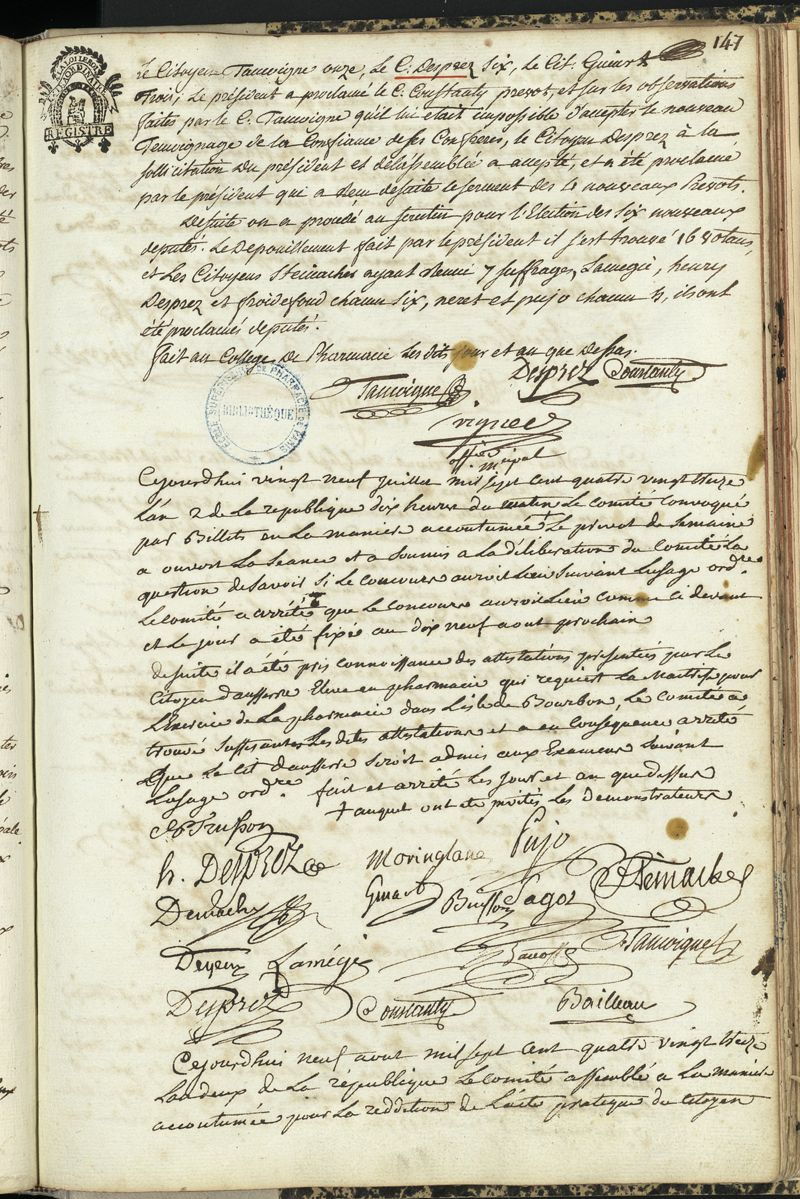 147
LA LOI LE ROI
REGISTRE
Le Citoyen Tauvigne onze, Le C. Desprez Six, Le Cit. Guiart
trois, Le président a proclamé le C. Constanty prevot, et sur les observations
faites par le C. Tauvigne qu'il lui etait impossible d'accepter le nouveau
temoignage de la Confiance de ses Confreres, le Citoyen Desprez à la
sollicitation du président et de l'assemblée a accepté, et a été proclamé
par le président qui a de suite le serment des 4 nouveaux Prevots.
De suite on a procédé au scrutin pour l'Election des six nouveaux
deputés. Le Depouillement fait par le président il s'est trouvé 16 votans,
et Les Citoyens Steinacher ayant réuni 7 suffrages, Lamegie, henry
Desprez et froidefond chacun six, neret et pujo chacun 5, ils ont
été proclamés deputés.
fait au College De Pharmacie Les dits jour et an que dessus.
Tauvigne Desprez Constanty
offier mcipal
ECOLE SUPERIEURE DE PHARMACIE DE PARIS
BIBLIOTHÈQUE
Cejourdhui vingt neuf juillet mil sept cent quatre vingt treize
L'an 2 de La republique dix heures du matin Le comité convoqué
par Billets en La maniere accoutumée Le prevot de semaine
a ouvert La seance et a soumis a La déliberation du Comité La
question de savoir si Le concours auroit Lieu suivant Lusage ordre.
Le comité a arrêté que Le concours auroit Lieu comme ci devant
et Le jour a été fixée au dix neuf aout prochain
de suite il a été pris connoissance des attestations presentées par Le
Citoyen dausserre Eleve en pharmacie qui requiert La Maitrise pour
L'Exercice de La pharmacie dans L'isle de Bourbon, Le Comité a
trouvé suffisantes Les dites attestations et a en consequence arrêté
Que Le Cit dausserre seroit admis aux Examens suivant
Lusage ordre. fait et arrêté Les jour et an que dessus
+ auquel ont été invités Les demonstrateurs
Trusson
h. Desprez Moringlane Pujo
Demachy Guiart Buisson Sagot Steinacher
Deyeux Lamégie Tauvigne
Desprez Constanty Bailleau
Cejourdhui neuf aout mil sept Cent quatre vingt treize
Lan deux de La république Le comité assemblé a La maniere
accoutumée pour La reddition de Lacte pratique du Citoyen